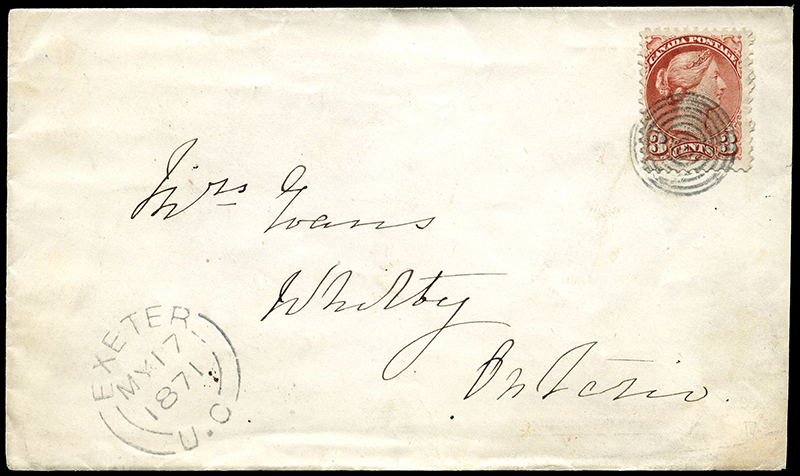 CANADA POSTAGE
3 CENTS 3
Mrs Evans
Whitby
Ontario.
EXETER
MY 17
1871
U.C